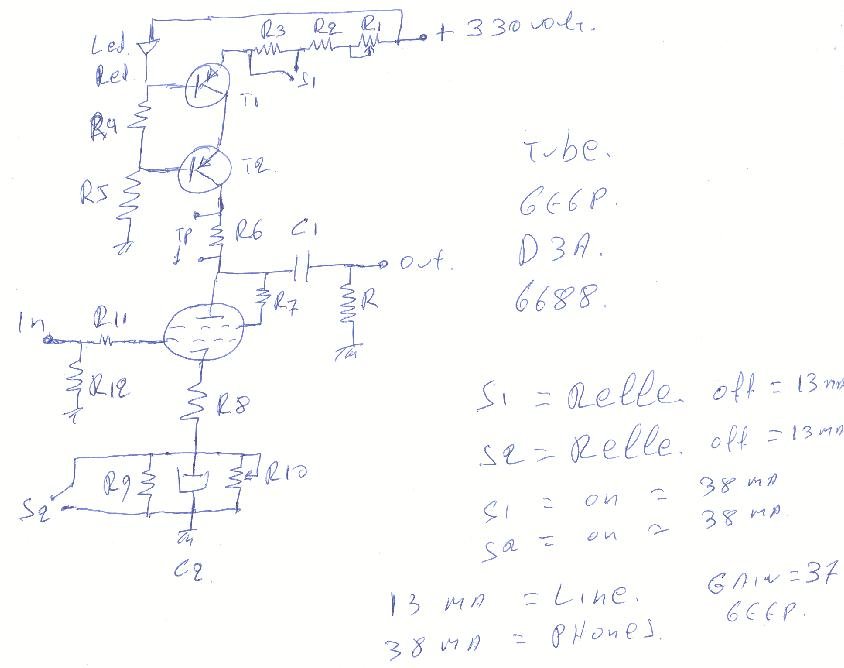 R3 R2 R1
+ 330 volt.
Led.
Red.
S1
T1
R4
T2
R5
TP
R6 C1
Out.
R7 R
In R11
R12
R8
R9 R10
S2
C2
Tube.
6E6P.
D3A.
6688.
S1 = Relle. off = 13 mA
S2 = Relle. off = 13 mA
S1 = on = 38 mA
S2 = on = 38 mA.
13 mA = Line. GAIN = 37
38 mA = PHones. 6E6P.